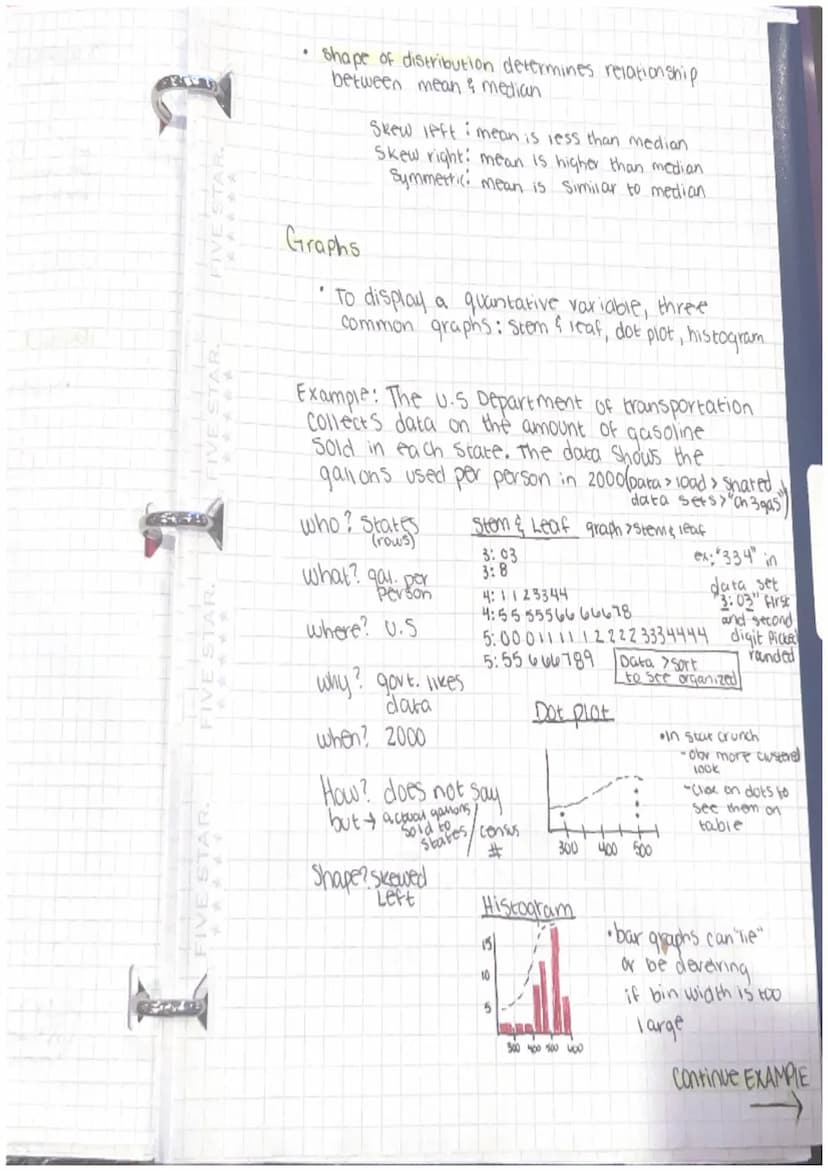 • Shape of distribution determines relationship
between mean & median
Skew left: mean is less than median
Skew right: mean is higher than median
Symmetric: mean is similar to median
Graphs
• To display a quantative variable, three
common graphs: Stem & leaf, dot plot, histogram
Example: The U.S Department of transportation
collects data on the amount of gasoline
sold in each state. The data shows the
gallons used per person in 2000 (Data > load > shared
data sets > "ch3gas")
who? States
(rows)
What? gal. per
person
where? U.S
why? govt. likes
data
when? 2000
How? does not say
but → actual gallons
sold to
states / census
#
Shape? skewed
Left
Stem & Leaf graph > stem & leaf
3: 03
3: 8
4: 1123344
4: 5555566666678
5: 00011111222223334444
5: 55666789
ex: "334" in
data set
"3: 03" first
and second
digit
rounded
Data > sort
to see organized
Dot plot
300 400 500
• In stat crunch
- more clustered
look
- Click on dots to
see them on
table
Histogram
15
10
5
300 400 500 600
• bar graphs can "lie"
or be deceiving
if bin width is too
large
Continue EXAMPLE
→
FIVE STAR.
FIVE STAR.
FIVE STAR.
FIVE STAR.